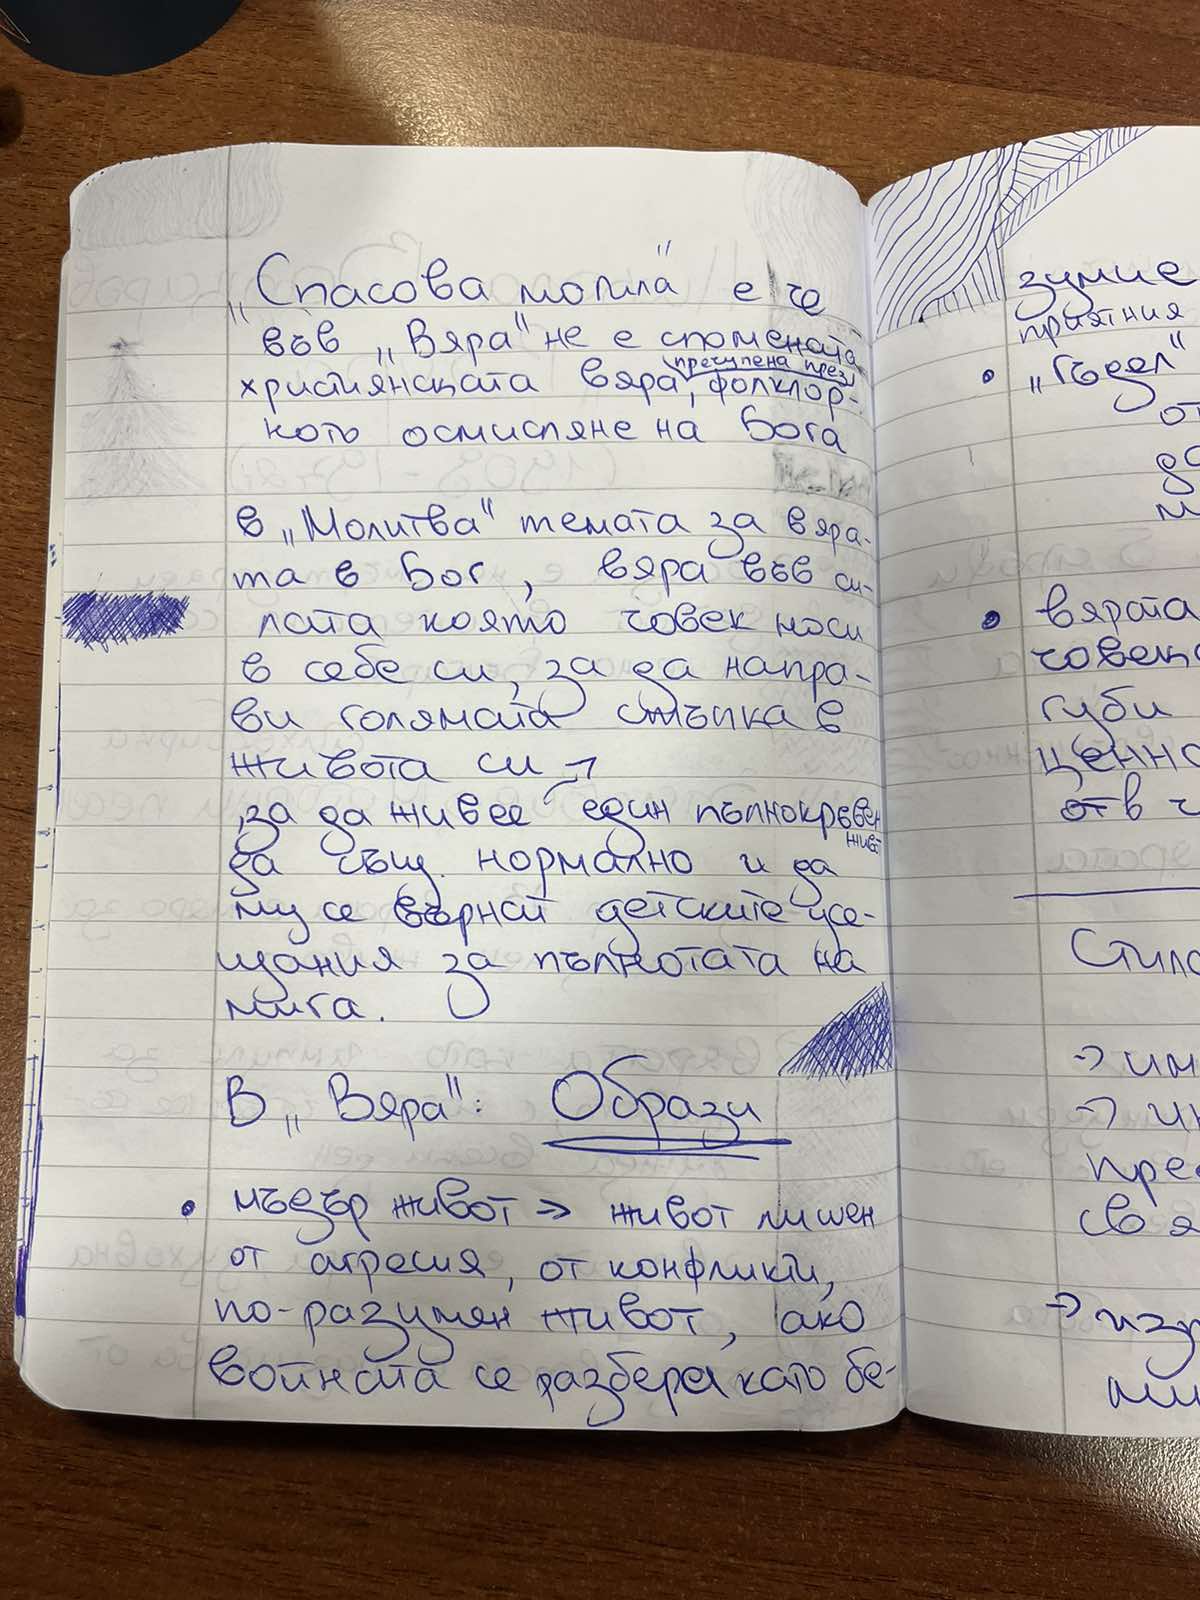 „Спасова могила" е че
във „Вяра" не е спомената
християнската вяра, пречупена през фолклор-
ното осмисляне на Бога
в „Молитва" темата за вяра-
та в Бог, вяра във си-
лата която човек носи
в себе си, за да напра-
ви голямата стъпка в
живота си →
за да живее един пълнокръвен живот
да същ. нормално и да
му се върнат детските усе-
щания за пълнотата на
мига.
В „Вяра": Образи
• мъдър живот => живот лишен
от агресия, от конфликти,
по-разумен живот, ако
войната се разбера като бе-
зумие
приятния
• „Гъдел"
от
• вярата
губи
отв
→ им